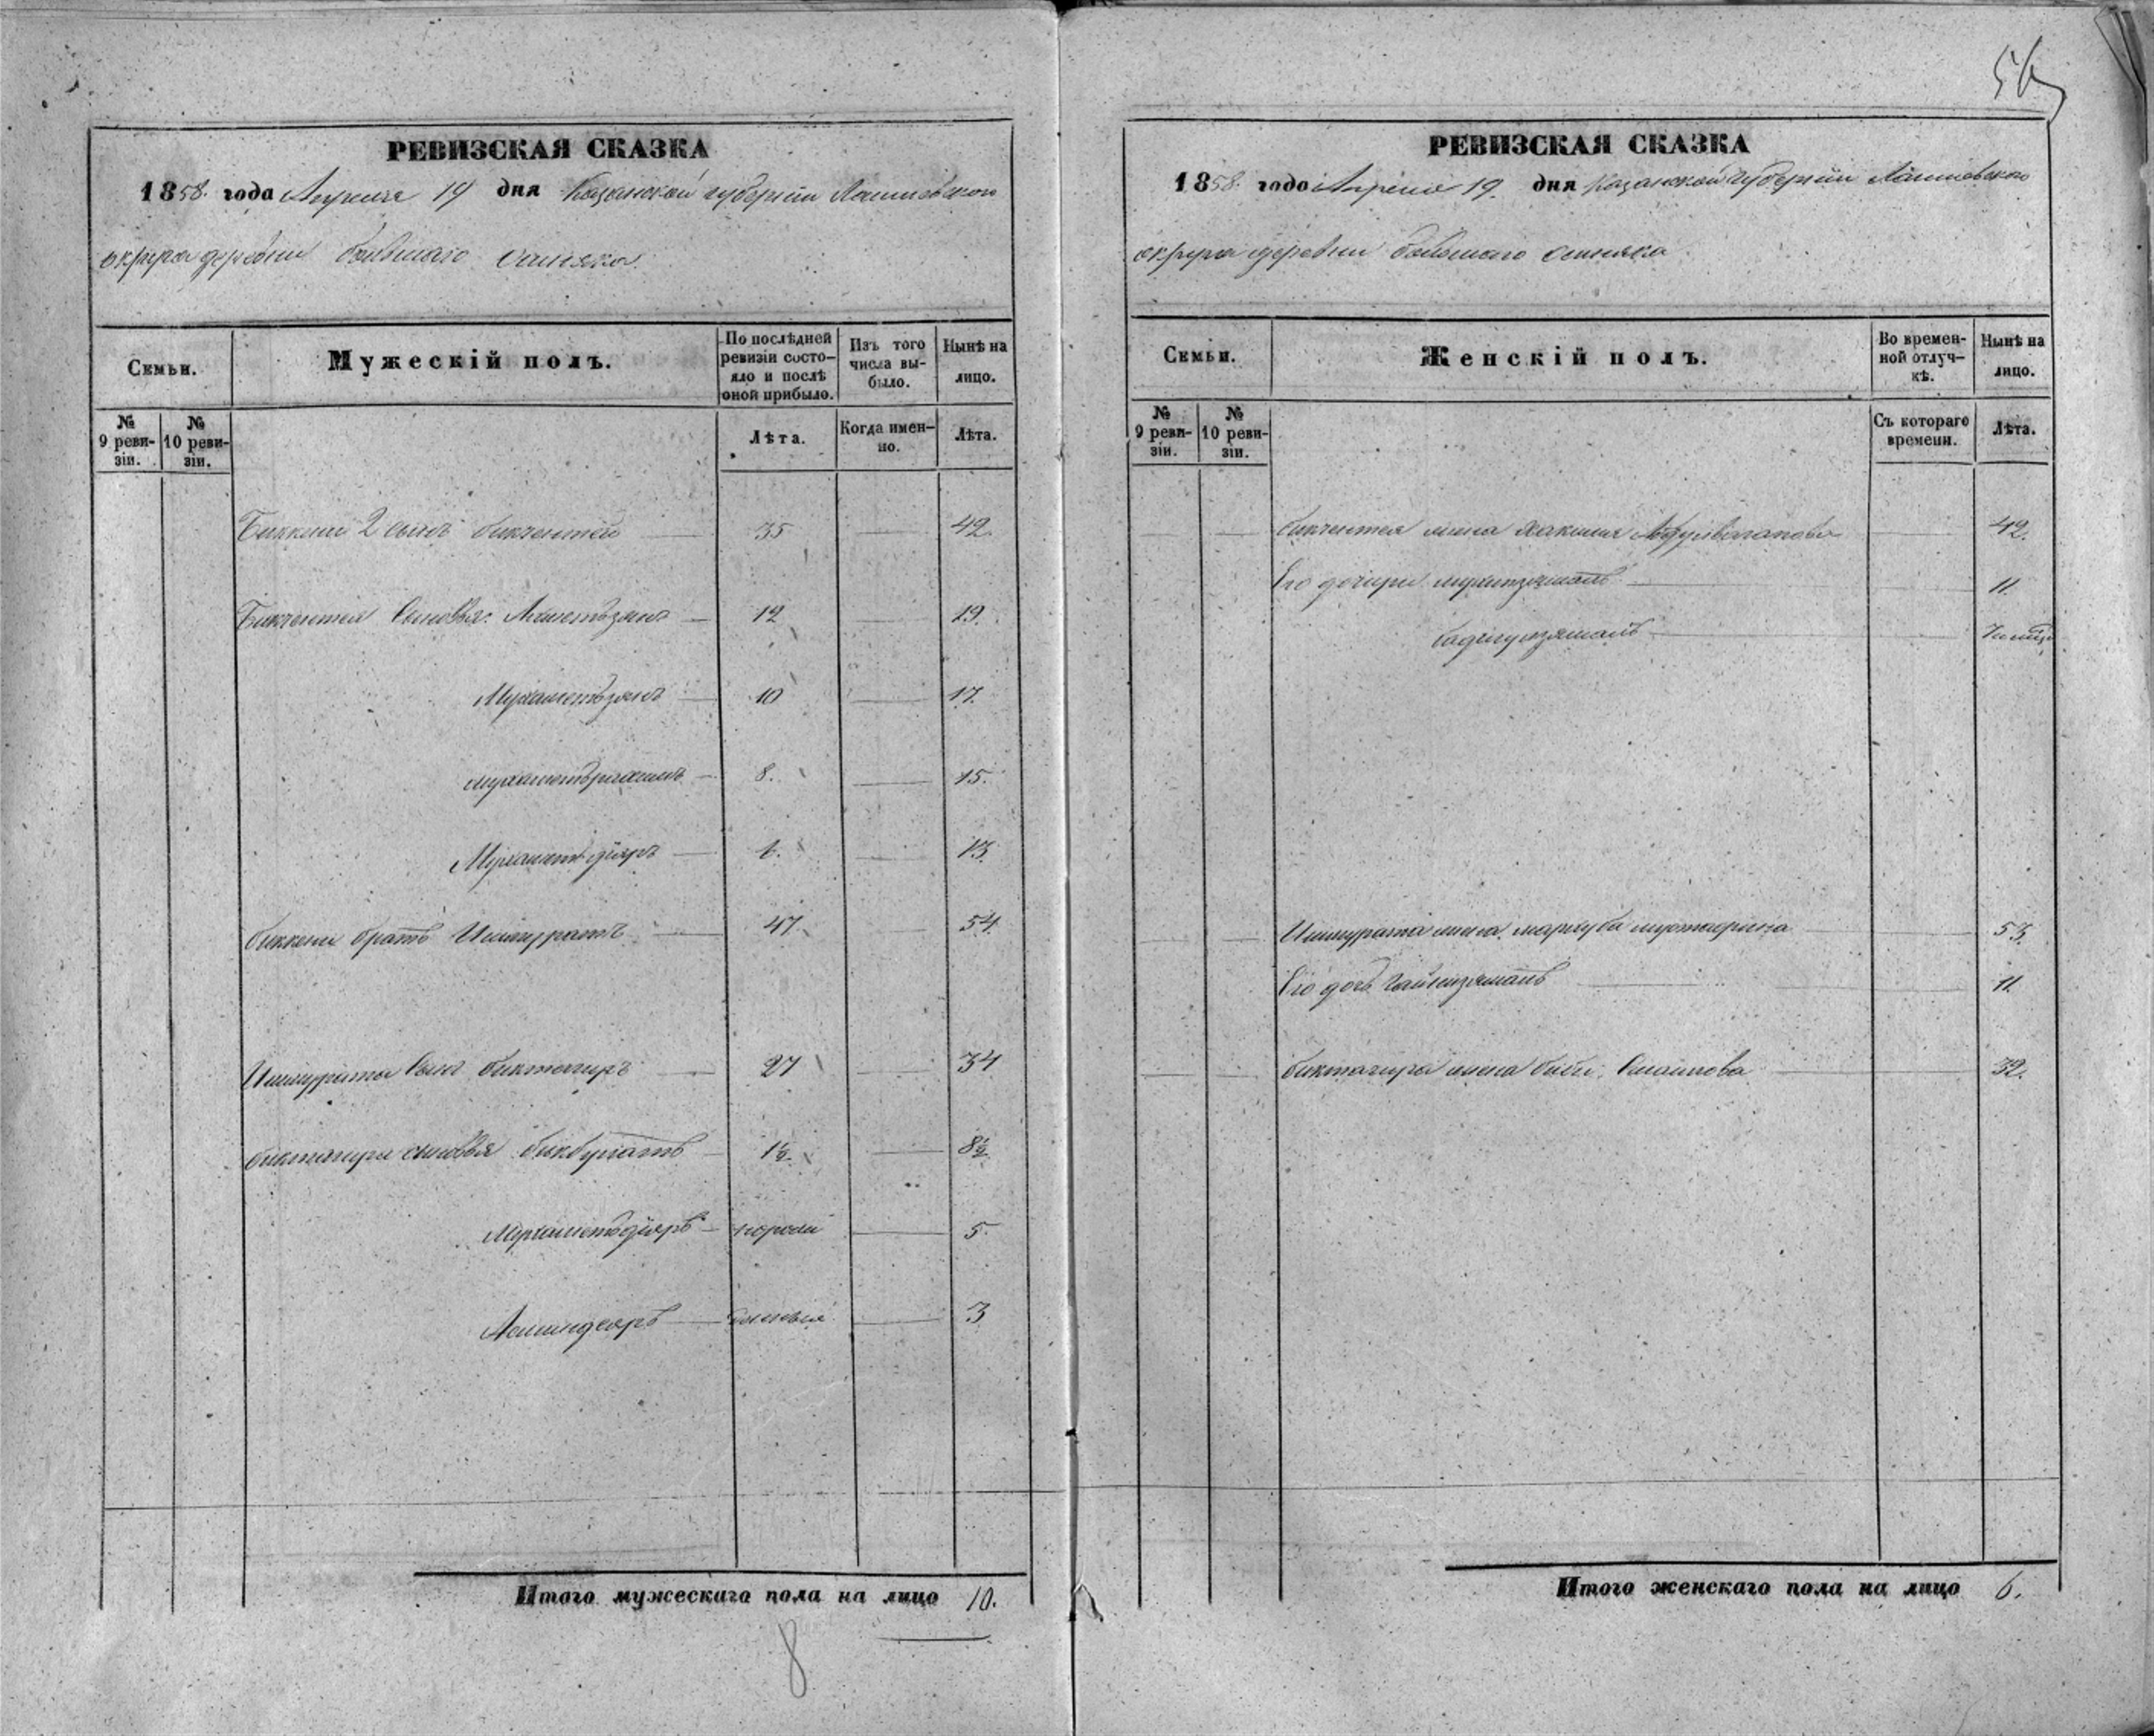 56
РЕВИЗСКАЯ СКАЗКА
1858. года Апреля 19 дня Казанской губернии Лаишевского
округа деревни большаго
Семьи.
Мужескій полъ.
По послѣдней ревизіи состо-
яло и послѣ оной прибыло.
Изъ того числа вы-
было.
Нынѣ на лицо.
№ 9 реви-
зіи.
№ 10 реви-
зіи.
Лѣта.
Когда имен-
но.
Лѣта.
Биккини 2 сынъ бикчентей 35 42.
Бикчентея сыновья: Ахметьзянъ 12 19.
Мухаметьзянъ 10 17.
Мухаметьрахимъ 8. 15.
Мухаметьдіяръ 13.
биккени братъ Ишмуратъ 47 54
Ишмурата сынъ биктагиръ 27 34
биктагира сыновья бикбулатъ 1½ 8½
Мухаметьдіяръ 5
3
Итого мужескаго пола на лицо 10.
8
РЕВИЗСКАЯ СКАЗКА
1858. года Апреля 19. дня Казанской губернии Лаишевского
округа деревни большаго
Семьи.
Женскій полъ.
Во времен-
ной отлуч-
кѣ.
Нынѣ на лицо.
№ 9 реви-
зіи.
№ 10 реви-
зіи.
Съ котораго времени.
Лѣта.
бикчентея жена хакимя Абдулвагапова 42.
Его дочери 11.
Ишмурата жена мархуба 53.
Его дочь 11
биктагира жена биби 32.
Итого женскаго пола на лицо 6.